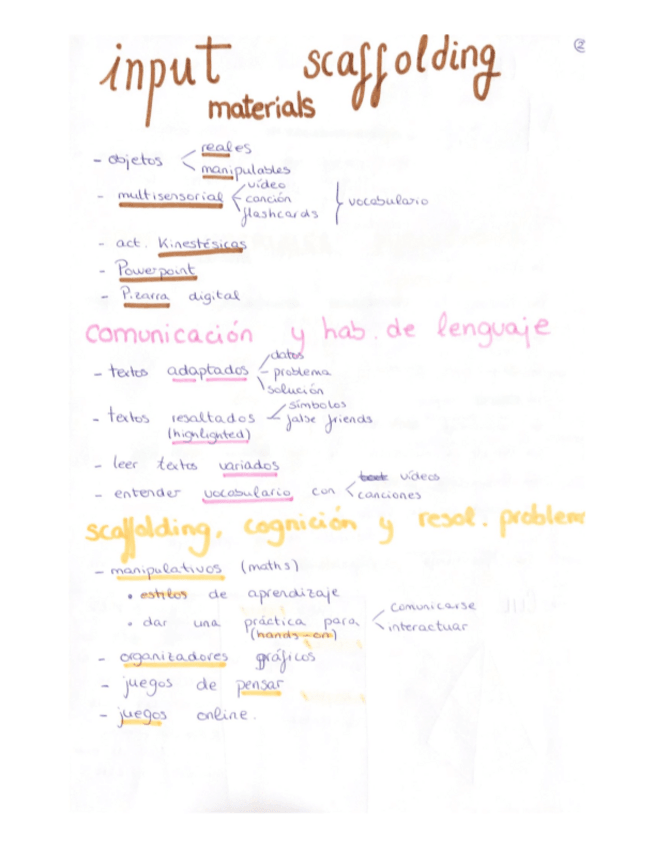 ②
input scaffolding
materials
- objetos < reales
manipulables
- multisensorial < vídeo
canción
flashcards } vocabulario
- act. Kinestésicas
- Powerpoint
- Pizarra digital
comunicación y hab. de lenguaje
- textos adaptados < datos
- problema
solución
- textos resaltados < símbolos
(highlighted) false friends
- leer textos variados
- entender vocabulario con < vídeos
canciones
scaffolding, cognición y resol. problem
- manipulativos (maths)
• estilos de aprendizaje
• dar una práctica para < comunicarse
(hands-on) interactuar
- organizadores gráficos
- juegos de pensar
- juegos online.